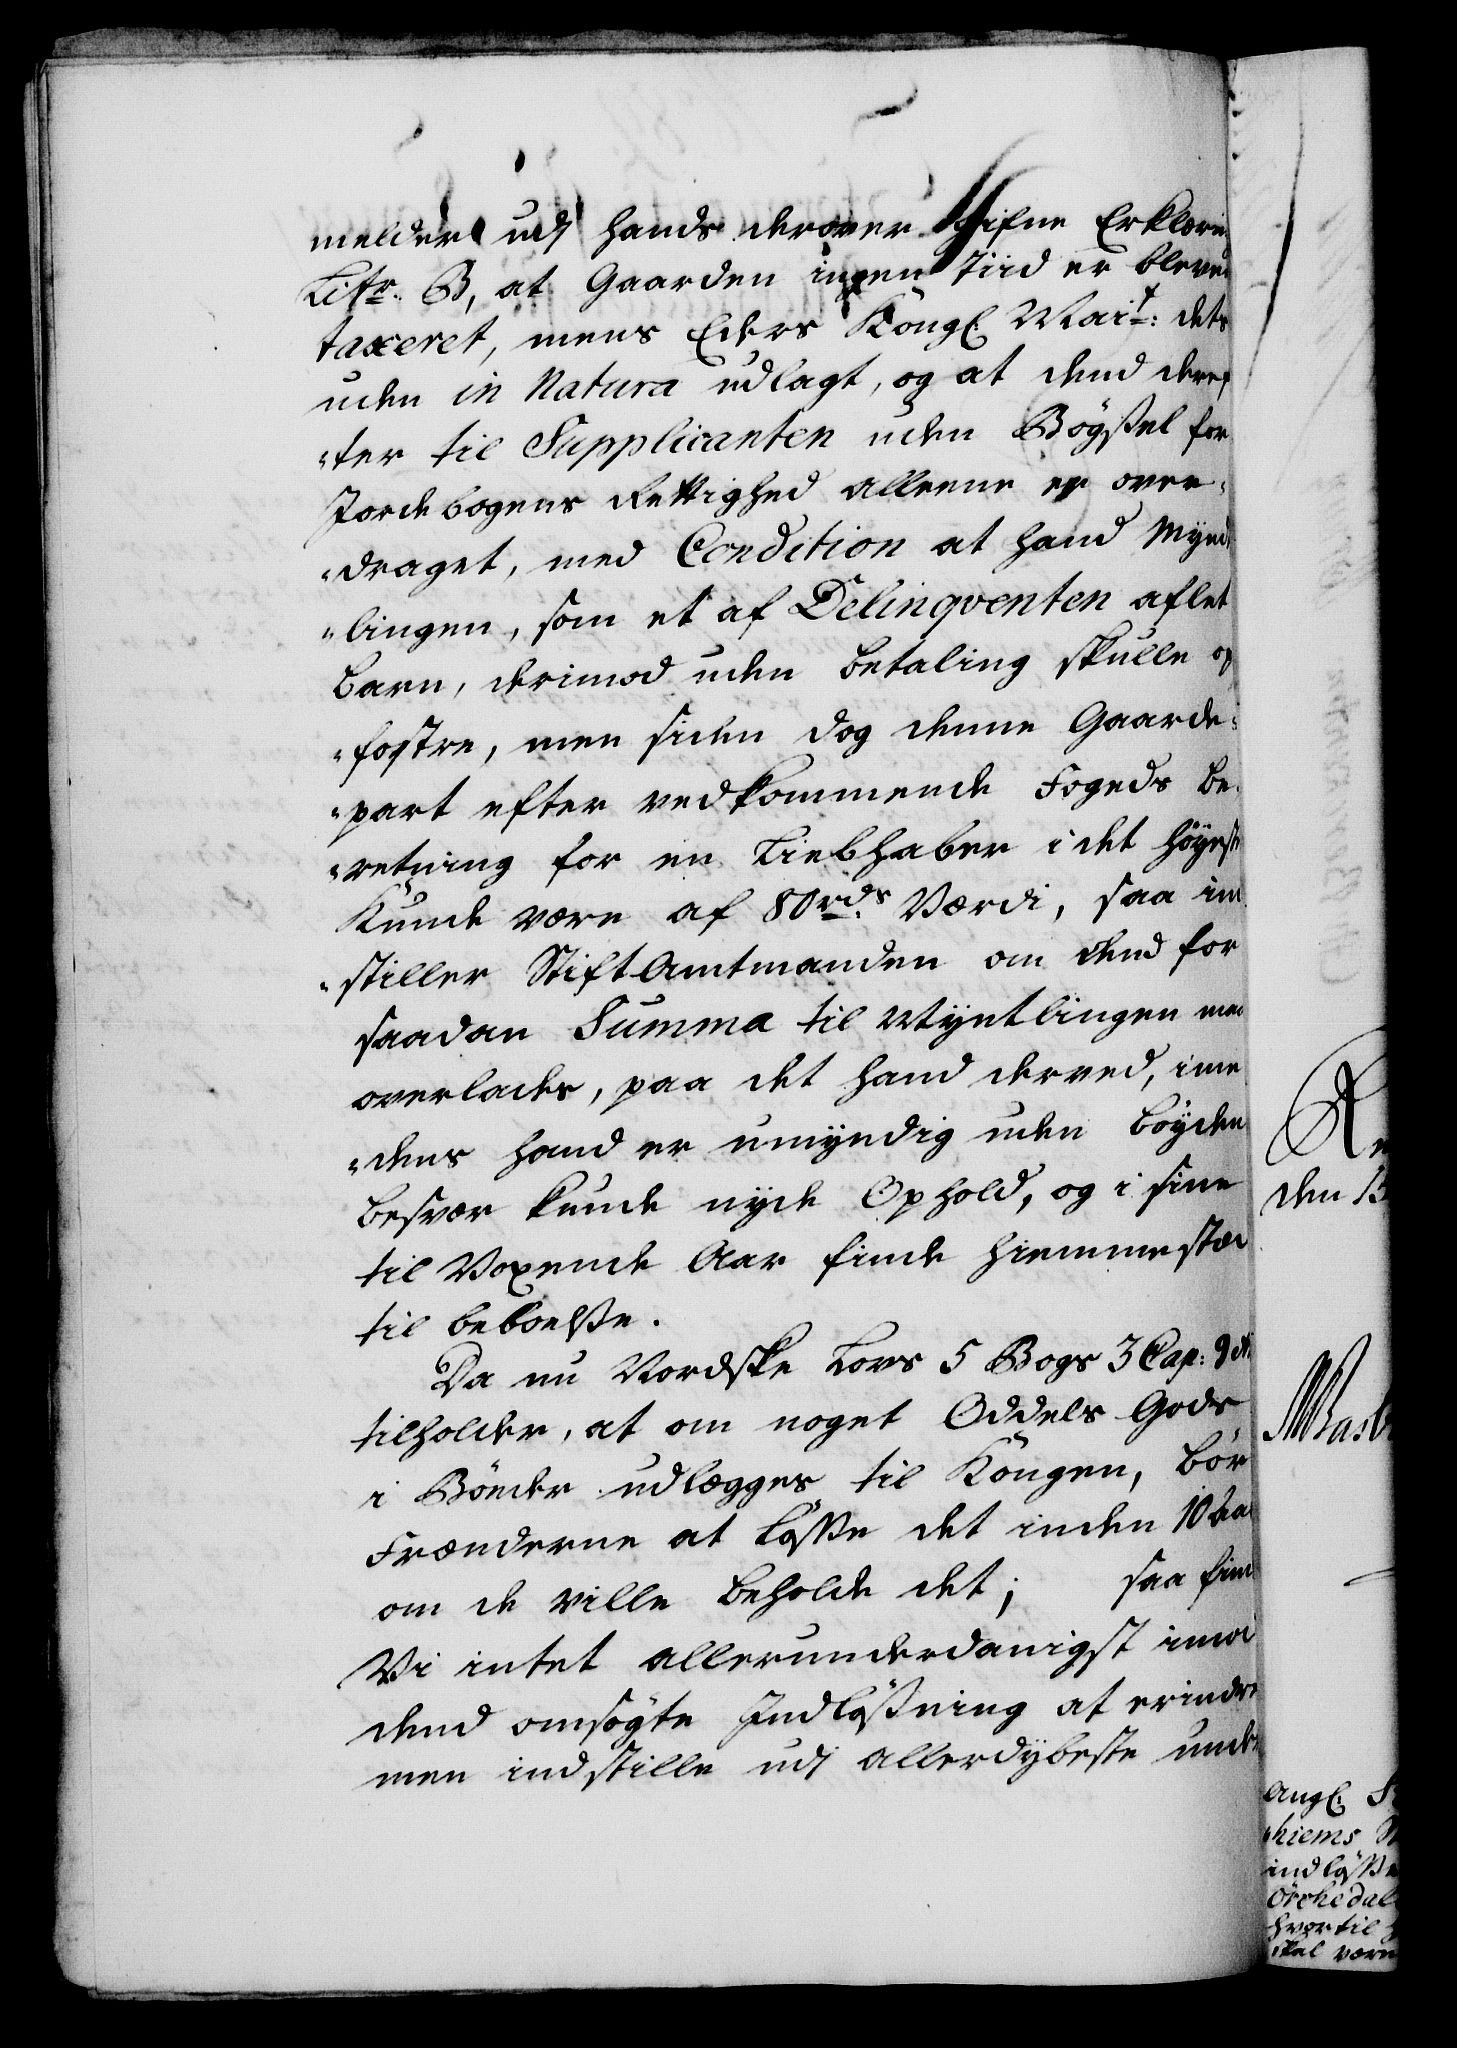 melder udj hands derover gifne Erklæri
Litr. B, at Gaarden ingen Tiid er bleve
taxeret, mens Eders Kongl. Mait: dets
uden in Natura udlagt, og at dend deref
ter til Supplicanten uden Böÿßel for
Jordebogens Rettighed alleene er over-
draget, med Condition at hand Mÿnd
lingen, som et af Delinqventen aflet
Barn, derimod uden betaling skulle op
fostre, men siden dog denne Gaarde-
part efter vedkommende Fogeds be-
retning for en Liebhaber i det höÿeste
Kunde være af 80 rds. Værdi, saa in
stiller Stiftamtmanden om dend for
saadan Summa til Mÿntlingen maa
overlades, paa det hand derved, ime
dens hand er umÿndig uden böÿdens
besvær kunde nÿde Ophold, og i sine
til Voxende Aar finde hiemmestæd
til beboelße.
Da nu Nordske Lovs 5 Bogs 3 Cap: 9 Art
tilholder, at om noget Oddels Gods
i Bönder udlægges til Kongen, bör
Frænderne at løße det inden 10 Aa
om de ville beholde det; saa find
Vi intet allerunderdanigst imod
dend omsögte Indlößning at erindre
men indstille udj allerdÿbeste unde
Re
den 13
Angl. S
hiems
indlöße
Örchedal
hvortil
skal være